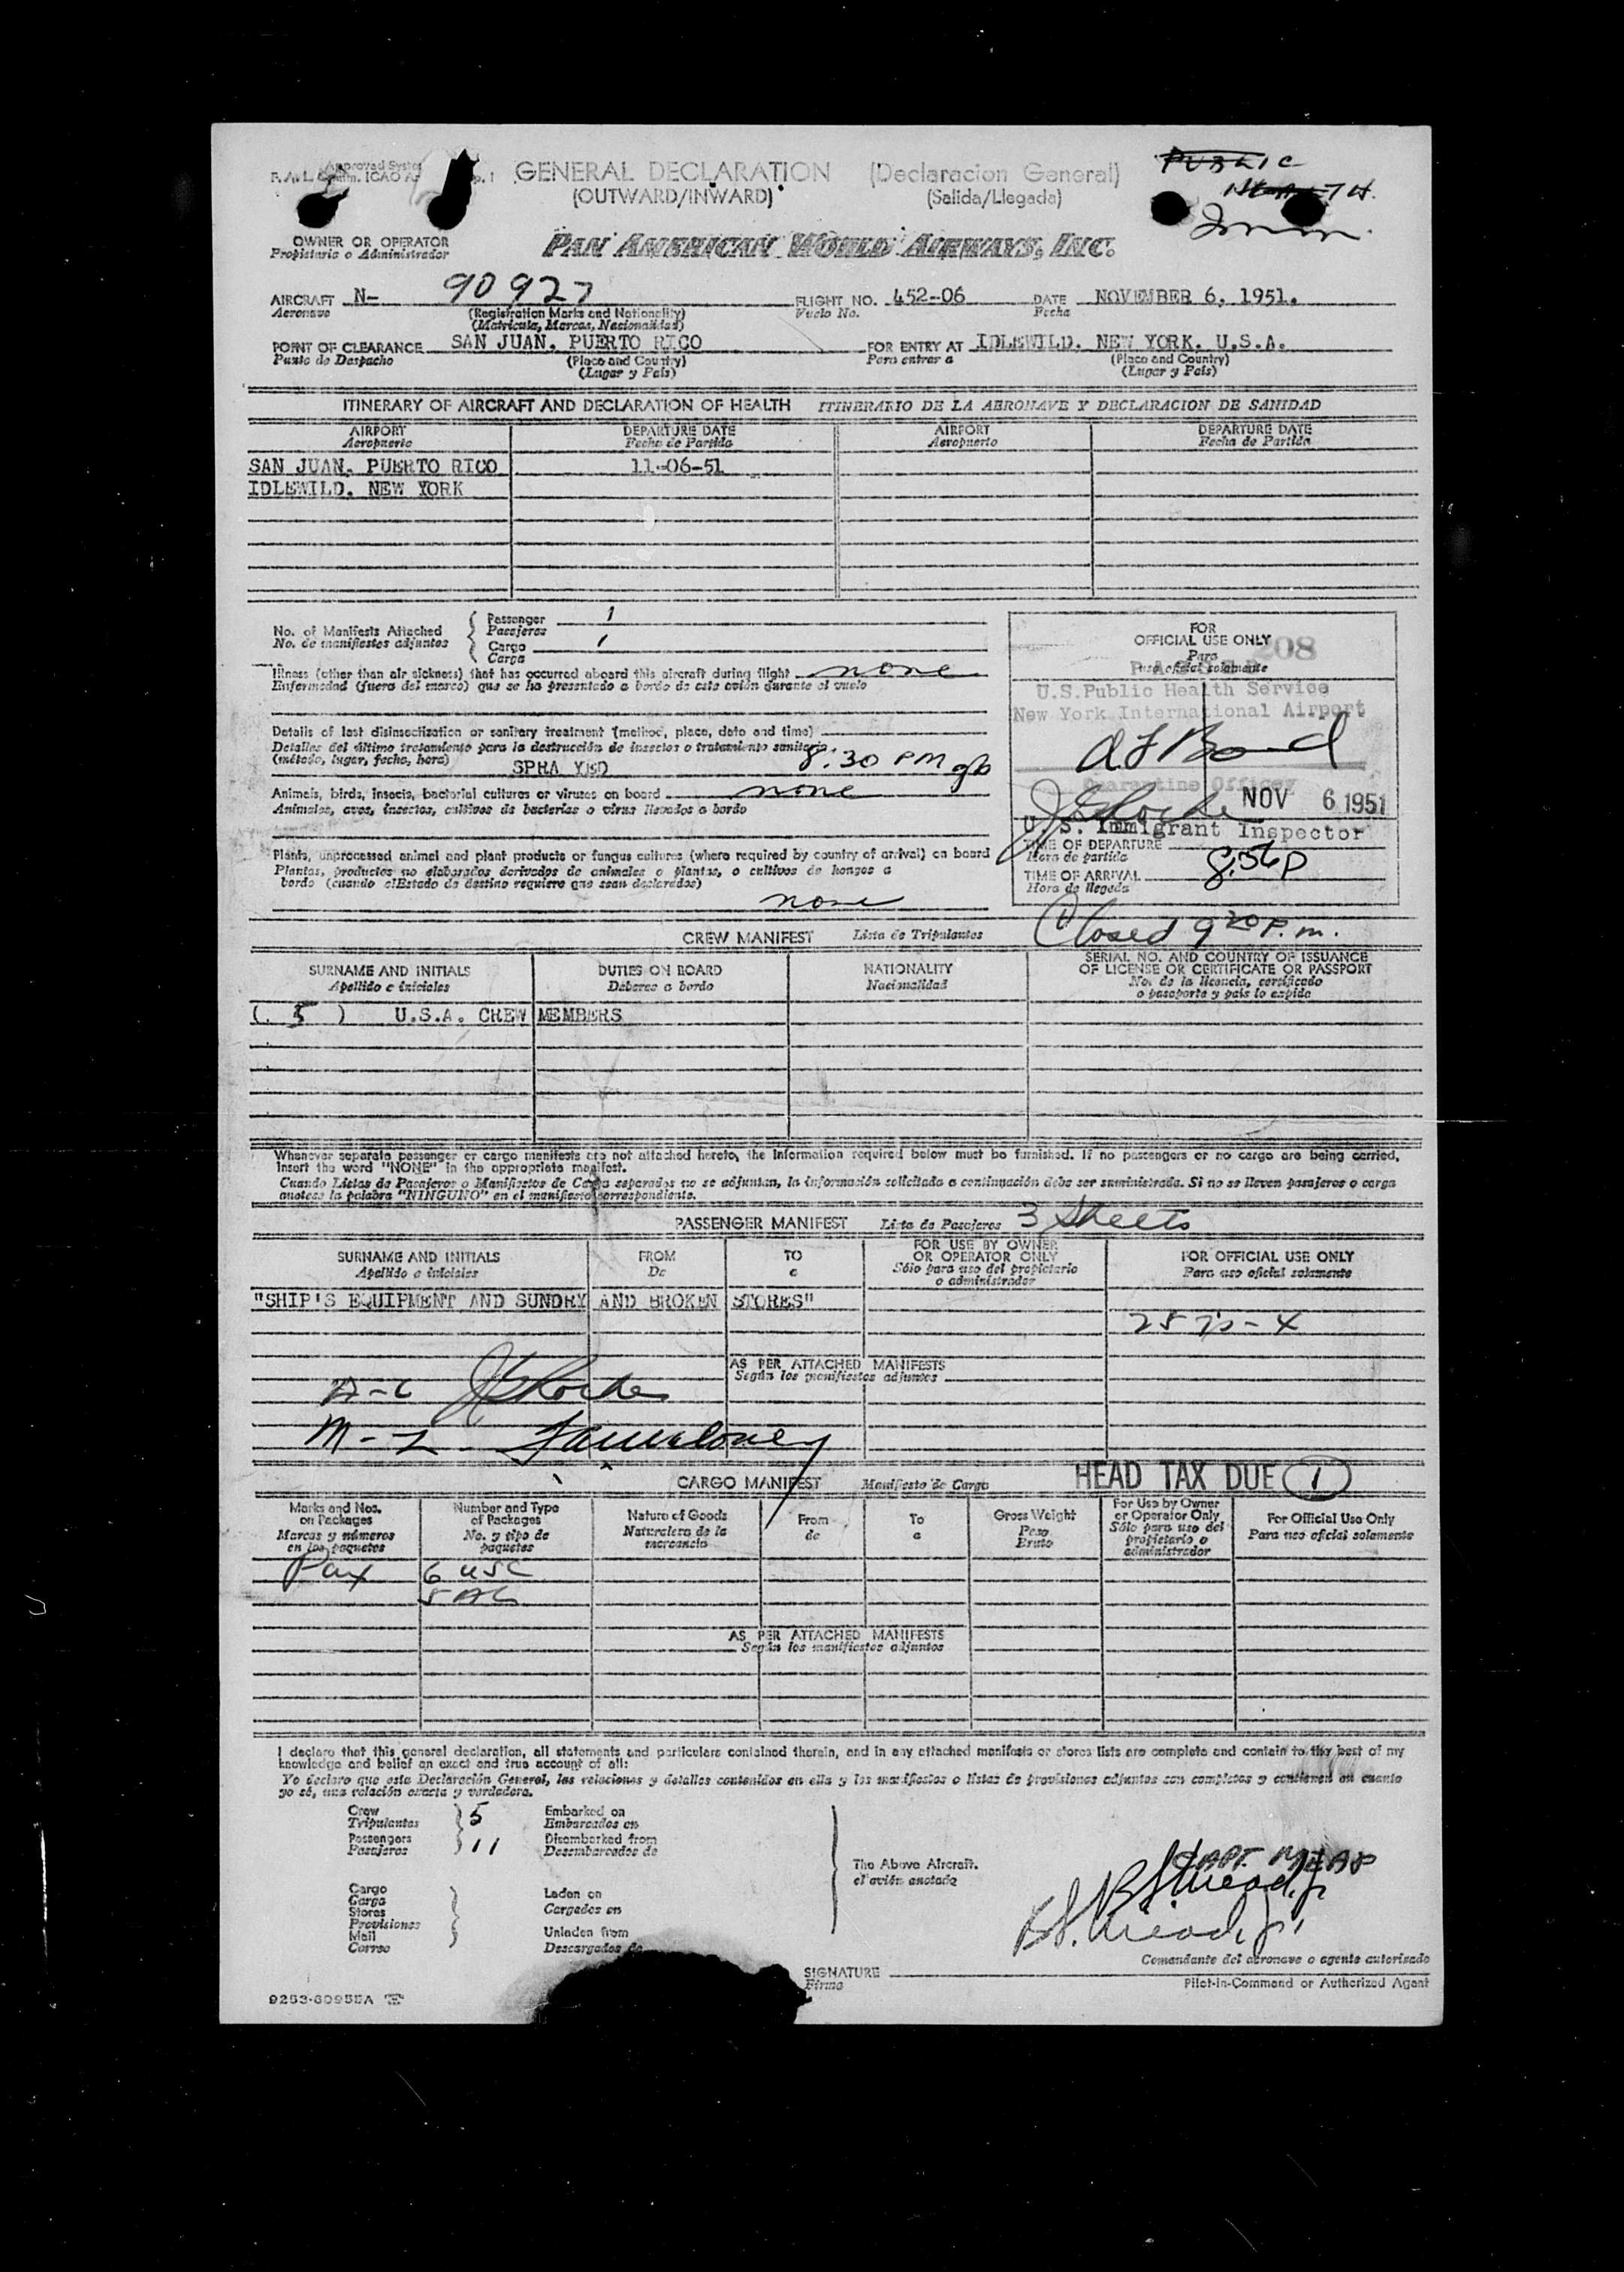 Approved System
GENERAL DECLARATION (Declaracion General)
(OUTWARD/INWARD) (Salida/Llegada)
PUBLIC
HEALTH.
Imm.
OWNER OR OPERATOR
Propietario o Administrador
PAN AMERICAN WORLD AIRWAYS, INC.
AIRCRAFT N- 90927 FLIGHT NO. 452-06 DATE NOVEMBER 6, 1951.
Aeronave (Registration Marks and Nationality) Vuelo No. Fecha
(Matricula, Marcas, Nacionalidad)
POINT OF CLEARANCE SAN JUAN, PUERTO RICO FOR ENTRY AT IDLEWILD, NEW YORK, U.S.A.
Punto de Despacho (Place and Country) Para entrar a (Place and Country)
(Lugar y País) (Lugar y País)
ITINERARY OF AIRCRAFT AND DECLARATION OF HEALTH ITINERARIO DE LA AERONAVE Y DECLARACION DE SANIDAD
AIRPORT DEPARTURE DATE AIRPORT DEPARTURE DATE
Aeropuerto Fecha de Partida Aeropuerto Fecha de Partida
SAN JUAN, PUERTO RICO 11-06-51
IDLEWILD, NEW YORK
No. of Manifests Attached
No. de manifiestos adjuntos
Passenger 1
Pasajeros
Cargo 1
Carga
Illness (other than air sickness) that has occurred aboard this aircraft during flight none
Enfermedad (fuera del mareo) que se ha presentado a bordo de este avión durante el vuelo
Details of last disinsectization or sanitary treatment (method, place, date and time)
Detalles del último tratamiento para la destrucción de insectos o tratamiento sanitario
(método, lugar, fecha, hora) SPRAYED 8:30 PM
Animals, birds, insects, bacterial cultures or viruses on board none
Animales, aves, insectos, cultivos de bacterias o virus llevados a bordo
Plants, unprocessed animal and plant products or fungus cultures (where required by country of arrival) on board
Plantas, productos no elaborados derivados de animales o plantas, o cultivos de hongos a
bordo (cuando el Estado de destino requiere que sean declarados)
none
FOR
OFFICIAL USE ONLY
208
Para
uso oficial solamente
PASSED
U.S.Public Health Service
New York International Airport
Quarantine Officer
NOV 6 1951
U. S. Immigrant Inspector
TIME OF DEPARTURE
Hora de partida
TIME OF ARRIVAL 8:56p
Hora de llegada
Closed 9 20 P.m.
CREW MANIFEST Lista de Tripulantes
SURNAME AND INITIALS DUTIES ON BOARD NATIONALITY SERIAL NO. AND COUNTRY OF ISSUANCE
OF LICENSE OR CERTIFICATE OR PASSPORT
Apellido e iniciales Deberes a bordo Nacionalidad No. de la licencia, certificado
o pasaporte y país lo expide
( 5 ) U.S.A. CREW MEMBERS
Whenever separate passenger or cargo manifests are not attached hereto, the information required below must be furnished. If no passengers or no cargo are being carried,
insert the word "NONE" in the appropriate manifest.
Cuando Listas de Pasajeros o Manifiestos de Carga separados no se adjuntan, la información solicitada a continuación debe ser suministrada. Si no se lleven pasajeros o carga
anotese la palabra "NINGUNO" en el manifiesto correspondiente.
PASSENGER MANIFEST Lista de Pasajeros 3 Sheets
SURNAME AND INITIALS FROM TO FOR USE BY OWNER
OR OPERATOR ONLY FOR OFFICIAL USE ONLY
Apellido e iniciales De a Sólo para uso del propietario
o administrador Para uso oficial solamente
"SHIP'S EQUIPMENT AND SUNDRY AND BROKEN STORES"
AS PER ATTACHED MANIFESTS
Según los manifiestos adjuntos
HEAD TAX DUE 1
CARGO MANIFEST Manifiesto de Carga
Marks and Nos.
on Packages
Marcas y números
en los paquetes
Number and Type
of Packages
No. y tipo de
paquetes
Nature of Goods
Naturaleza de la
mercancia
From
de
To
a
Gross Weight
Peso
Bruto
For Use by Owner
or Operator Only
Sólo para uso del
propietario o
administrador
For Official Use Only
Para uso oficial solamente
Pax 6 USC
AS PER ATTACHED MANIFESTS
Según los manifiestos adjuntos
I declare that this general declaration, all statements and particulars contained therein, and in any attached manifests or stores lists are complete and contain to the best of my
knowledge and belief an exact and true account of all:
Yo declaro que esta Declaración General, las relaciones y detalles contenidos en ella y los manifiestos o listas de provisiones adjuntos son completos y contienen en cuanto
yo sé, una relación exacta y verdadera.
Crew 5 Embarked on
Tripulantes Embarcados en
Passengers 11 Disembarked from
Pasajeros Desembarcados de
The Above Aircraft.
el avión anotado
Cargo
Carga
Stores
Provisiones
Mail
Correo
Laden on
Cargados en
Unladen from
Descargados de
CAPT. MEAD
B.S. Mead, jr
B.S. Mead, jr
Comandante del aeronave o agente autorizado
SIGNATURE
Firma
Pilot-in-Command or Authorized Agent
9253-60955A